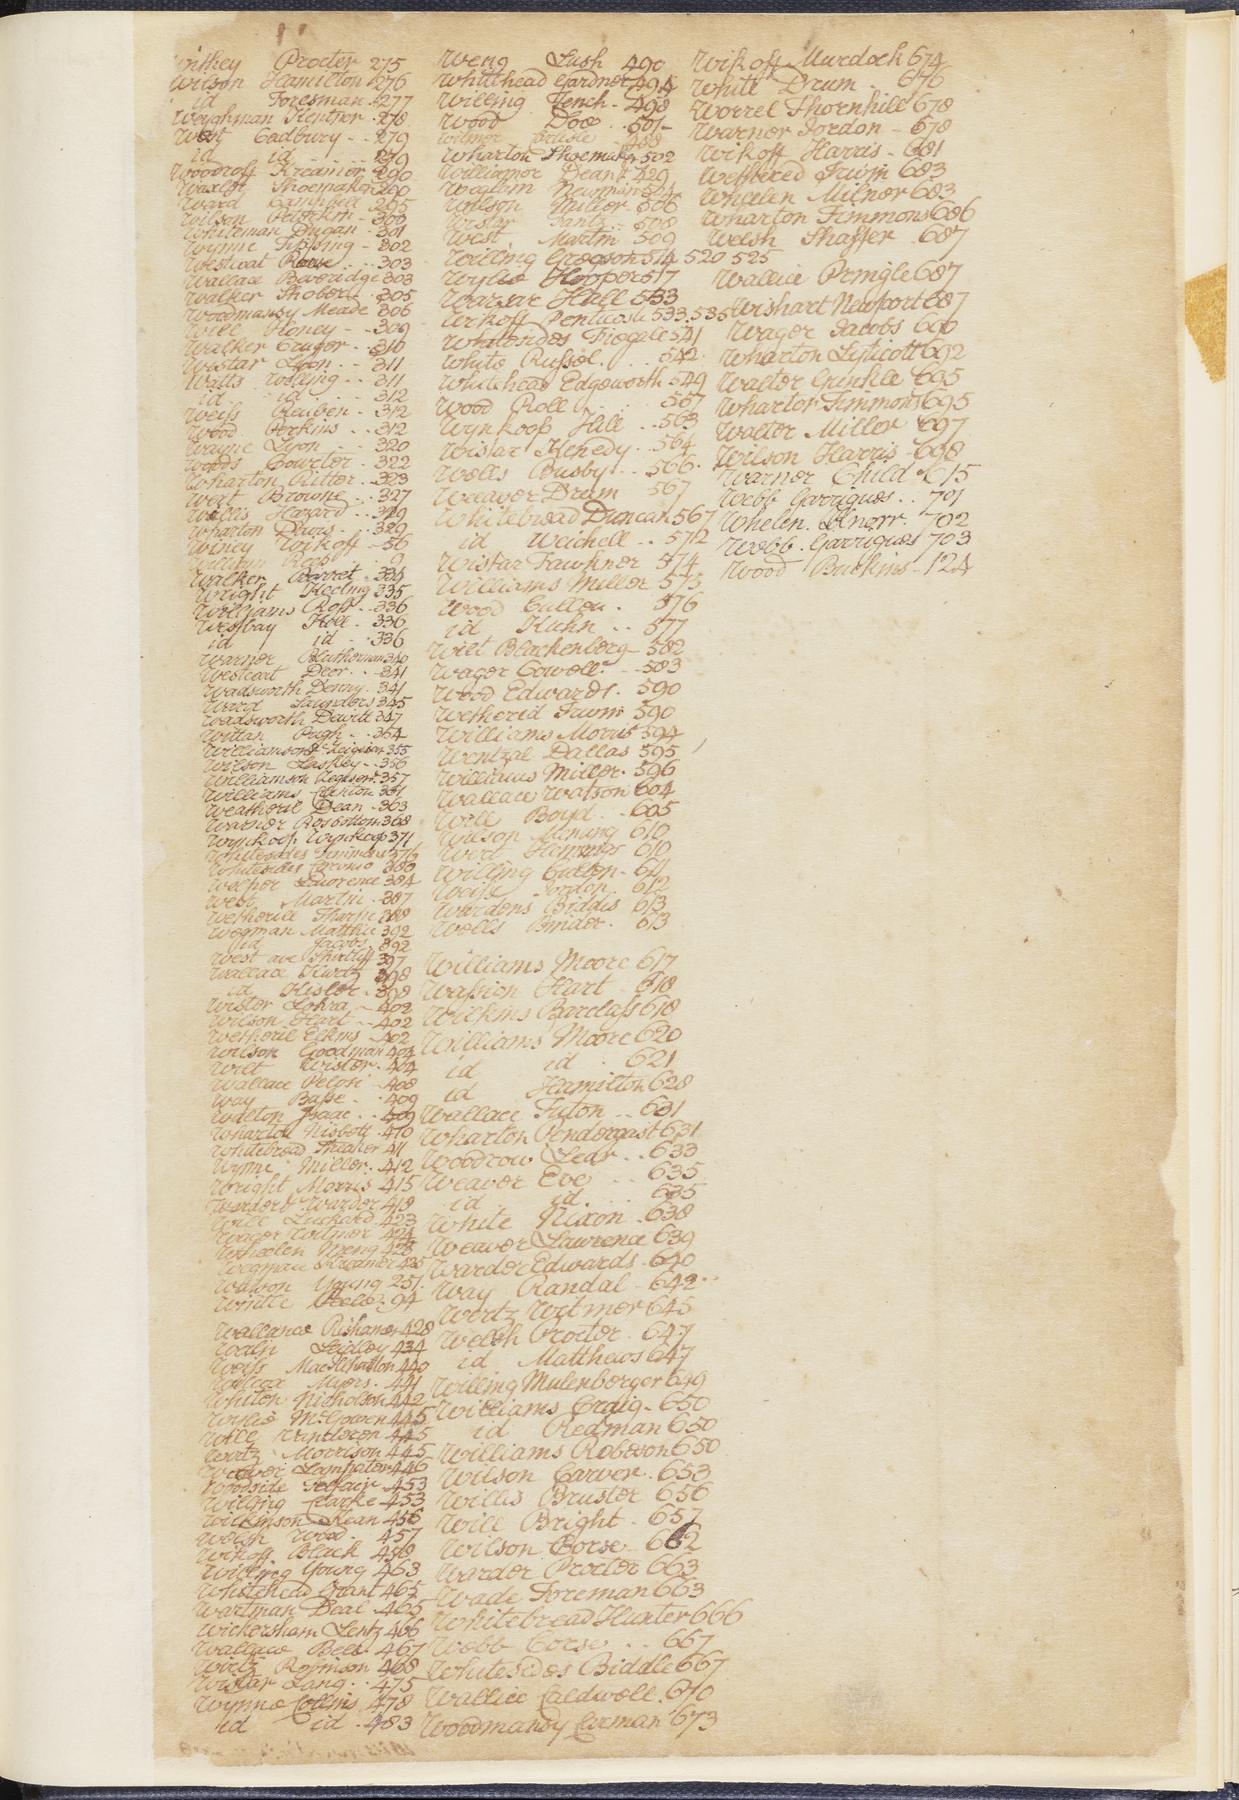 Proctor 275
Wilson Hamilton 276
id Foresman 277
Weighman Kentner 278
West Cadbury - - 279
id id 279
Woodroff Kreamer 290
Shoemaker 290
Ward Campbell 295
Wilson 300
Whiteman Dugan 301
Wynne Tipping - 302
Westcoat Rouse 303
Wallace Beveridge 303
Walker Shobert 305
Woodmansy Meade 306
Will Honey - 309
Walker Cruger 310
Wistar Lyon - 311
Walls Willing 311
id id 312
Weiss Reuben 312
Wood Perkins 312
Wayne Lyon 320
Woods Courter 322
Wharton Ritter 323
West Browne 327
Wallis Hazard 329
Wharton Pears 329
Winey Wikoff 56
Walker Barret 334
Wright Keeling 335
Williams Ross 336
Westbay Holl 336
id id 336
Warner 340
Westcoat Deer 341
Wadsworth Denny 341
Ward Saunders 345
Wadsworth Davitt 347
Pugh 354
Williamson 355
Wilson Laskey 356
Williamson 357
Williams Clenton 361
Weatheril Dean 363
Warner Rosbottom 368
Wynkoop Wynkoop 371
Whitesides Timmons 376
Whitesides 380
Welcher Lawrence 384
West Martin 387
Wetherill Tharp 388
Wegman Matthew 392
id Jacobs 392
West 397
Wallace Kurtz 398
id Kisler 398
Wister Lohra 402
Wilson Hart 402
Wetheril Elkins 402
Wilson Goodman 404
Wilt Wister 404
Wallace Pelosi 408
Way Basse 409
Walton Isaac 409
Wharton Nisbett 410
Whitebread Shealier 411
Wynne Miller 412
Wright Morris 415
Warder Warder 418
Will Luckard 423
Wager Witmer 424
Whealen Weng 428
Wegman Kreamer 425
Watson Young 251
Wintle Held 94
Wallance Rishamer 428
Leidley 434
Weiss 440
Wilcox Myers 441
Whiten Nicholson 442
Wyllis McGowen 445
Will Wintleren 445
Wertz Morrison 445
Weaver 446
Woodside Telfair 453
Willing Clarke 453
Wickinson Kean 456
Welsh Wood 457
Wikoff Black 458
Willing Young 463
Whitehead Grant 465
Wartman Beal 465
Wickersham Lentz 466
Wallace Bees 467
Wirtz Robinson 468
Wistar Lang 475
Wynne Collins 478
id id 483
Weng Lush 490
Whitehead Gardner 494
Willing Tench - 498
Wood Doe 501
Wharton Shoemaker 502
Williamer Deant 429
Waglom Newman 504
Wilson Miller 506
Wistar Lantz 508
West Martin 509
Willing Gregson 514 520 525
Wyllis Hooper 517
Hall 533
Wikoff Penticost 533.535
Whitesides 541
White Russel 542
Whitehead Edgeworth 549
Wood Roll 567
Wynkoop Hill 563
Wistar Kenedy 564
Wells Busby 566
Weaver Drum 567
Whitebread Duncan 567
id Weichell 572
Wistar Fawkner 574
Williams Miller 575
Wood Cullen 576
id Kuhn 577
Wilt Blackenberg 582
Wager Cowell 583
Wood Edwards 590
Wetherid Irwin 590
Williams Morris 594
Wentzal Dallas 595
Williams Miller 596
Wallace Watson 604
Will Boyd 605
Wilson Mening 610
Word Hemings 610
Willing Cullen 611
Weiss Jordon 612
Wardens Biddis 613
Wells Binder 613
Williams Moore 617
Wassion Hart 618
Wilkins Barclass 618
Williams Moore 620
id id 621
id Hamilton 628
Wallace Tuton 631
Wharton Pendergast 631
Woodrow Lear 633
Weaver Eve 635
id id 635
White Nixon 638
Weaver Lawrence 639
Warder Edwards 640
Way Randal 642
Wertz Witmer 645
Welsh Procter 647
id Matthews 647
Willing Mulenberger 649
Williams Craig 650
id Redman 650
Williams Robeson 650
Wilson Carver 653
Willis Bruster 656
Will Bright 657
Wilson Corse 662
Warder Procter 663
Wade Foreman 663
Whitebread Hunter 666
Webb Corse 667
Whitesides Biddle 667
Wallice Caldwell 670
Woodmansy Carman 673
Wikoff Murdock 674
White Drum 676
Worrel Thornhill 678
Warner Jordon - 678
Wikoff Harris - 681
Wethered Irwin 683
Wheelen Milnor 683
Wharton Timmons 686
Welsh Shaffer 687
Wallice Pringle 687
Wishart Newport 687
Wager Jacobs 690
Wharton Lyticott 692
Walter Crinkle 695
Wharton Timmons 695
Walter Miller 697
Wilson Harris 698
Warner Child 615
Webb Garrigues 701
Whelen Knorr 702
Webb Garrigues 703
Wood Buckins 124